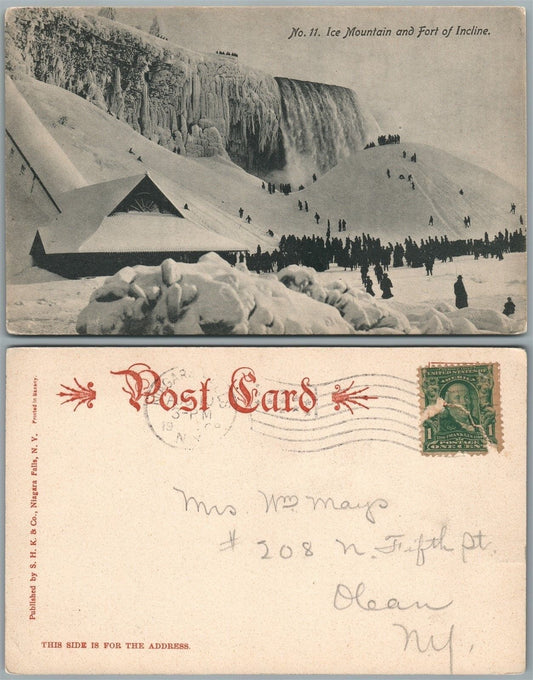 No. 11. Ice Mountain and Fort of Incline.
Post Card
Published by S. H. K. & Co., Niagara Falls, N. Y. Printed in
THIS SIDE IS FOR THE ADDRESS.
UNITED STATES OF
AMERICA
1
POSTAGE
ONE CENT
Mrs Wm Mays
# 208 N. Fifth St.
Olean
NY.